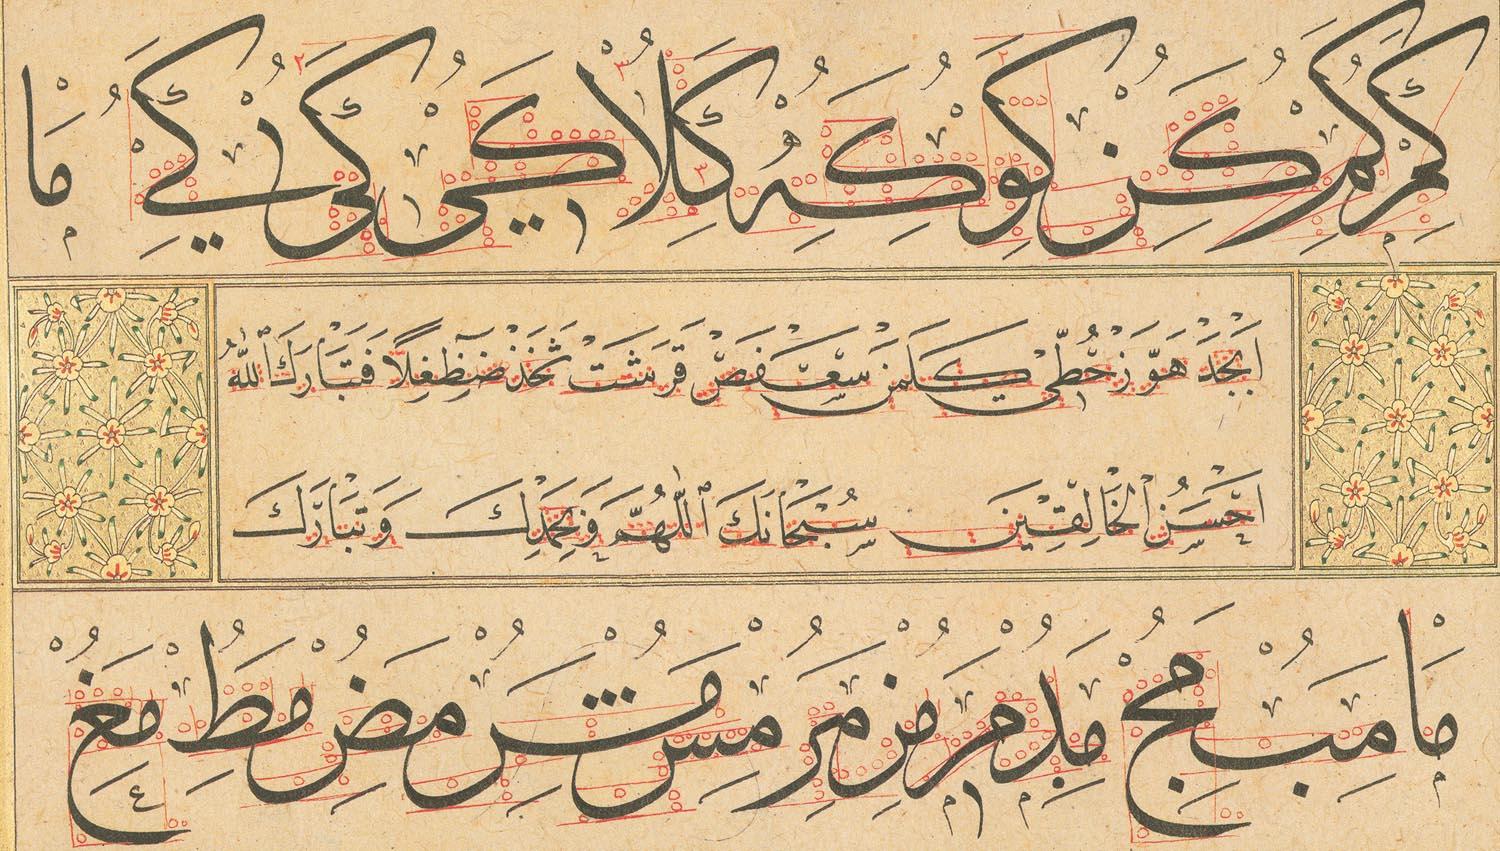 كمر كمر كن كو كه كلا كى كى كے ما
ابجد هوز حطي كلمن سعفص قرشت ثخذ ضظغلا فتبارك الله
احسن الخالقين سبحانك اللهم وبحمدك وتبارك
ما مب مج مد مر مز مر مس مش مض مط مغ